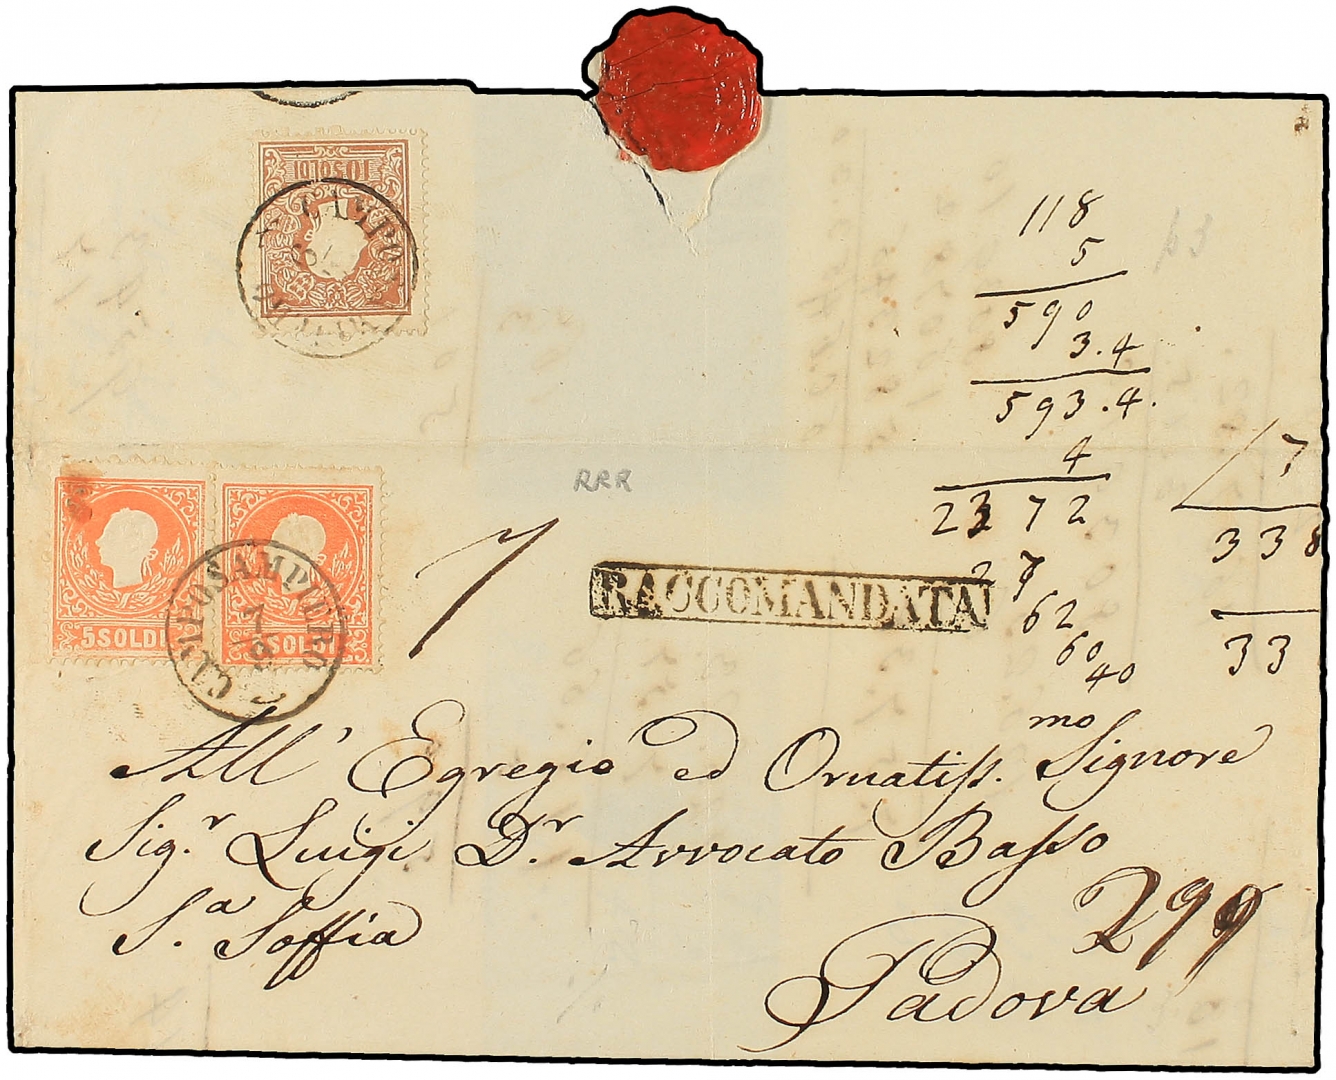 10 SOLDI
118
5
590
3.4
593.4.
4
2372
62
60
40
7
338
33
RRR
63
5 SOLDI
5 SOLDI
CAMPOSAMPIERO
7
RACCOMANDATA
All' Egregio ed Ornatiss.mo Signore
Sig.r Luigi D.r Avvocato Basso
S.a Soffia
299
Padova